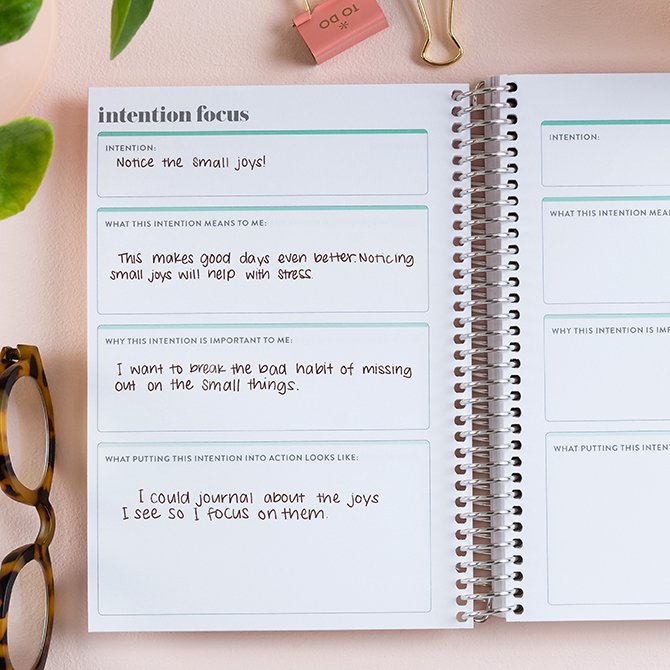 TO DO
intention focus
INTENTION:
Notice the small joys!
WHAT THIS INTENTION MEANS TO ME:
This makes good days even better. Noticing
small joys will help with stress.
WHY THIS INTENTION IS IMPORTANT TO ME:
I want to break the bad habit of missing
out on the small things.
WHAT PUTTING THIS INTENTION INTO ACTION LOOKS LIKE:
I could journal about the joys
I see so I focus on them.
INTENTION:
WHAT THIS INTENTION
WHY THIS INTENTION IS
WHAT PUTTING THIS